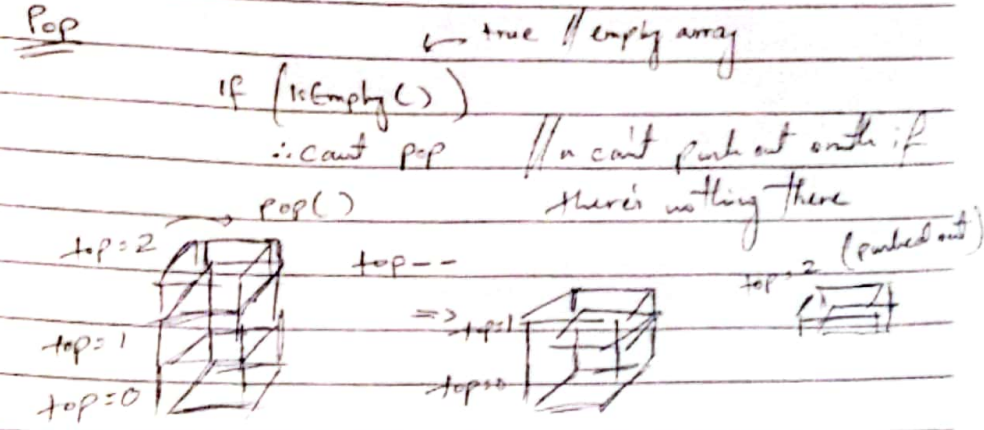 Pop
← true // empty array
if (isEmpty())
∴ can't pop // u can't push out smth if
there's nothing there
pop()
top=2 top-- top=2 (pushed out)
=> top=1
top=1
top=0 top=0